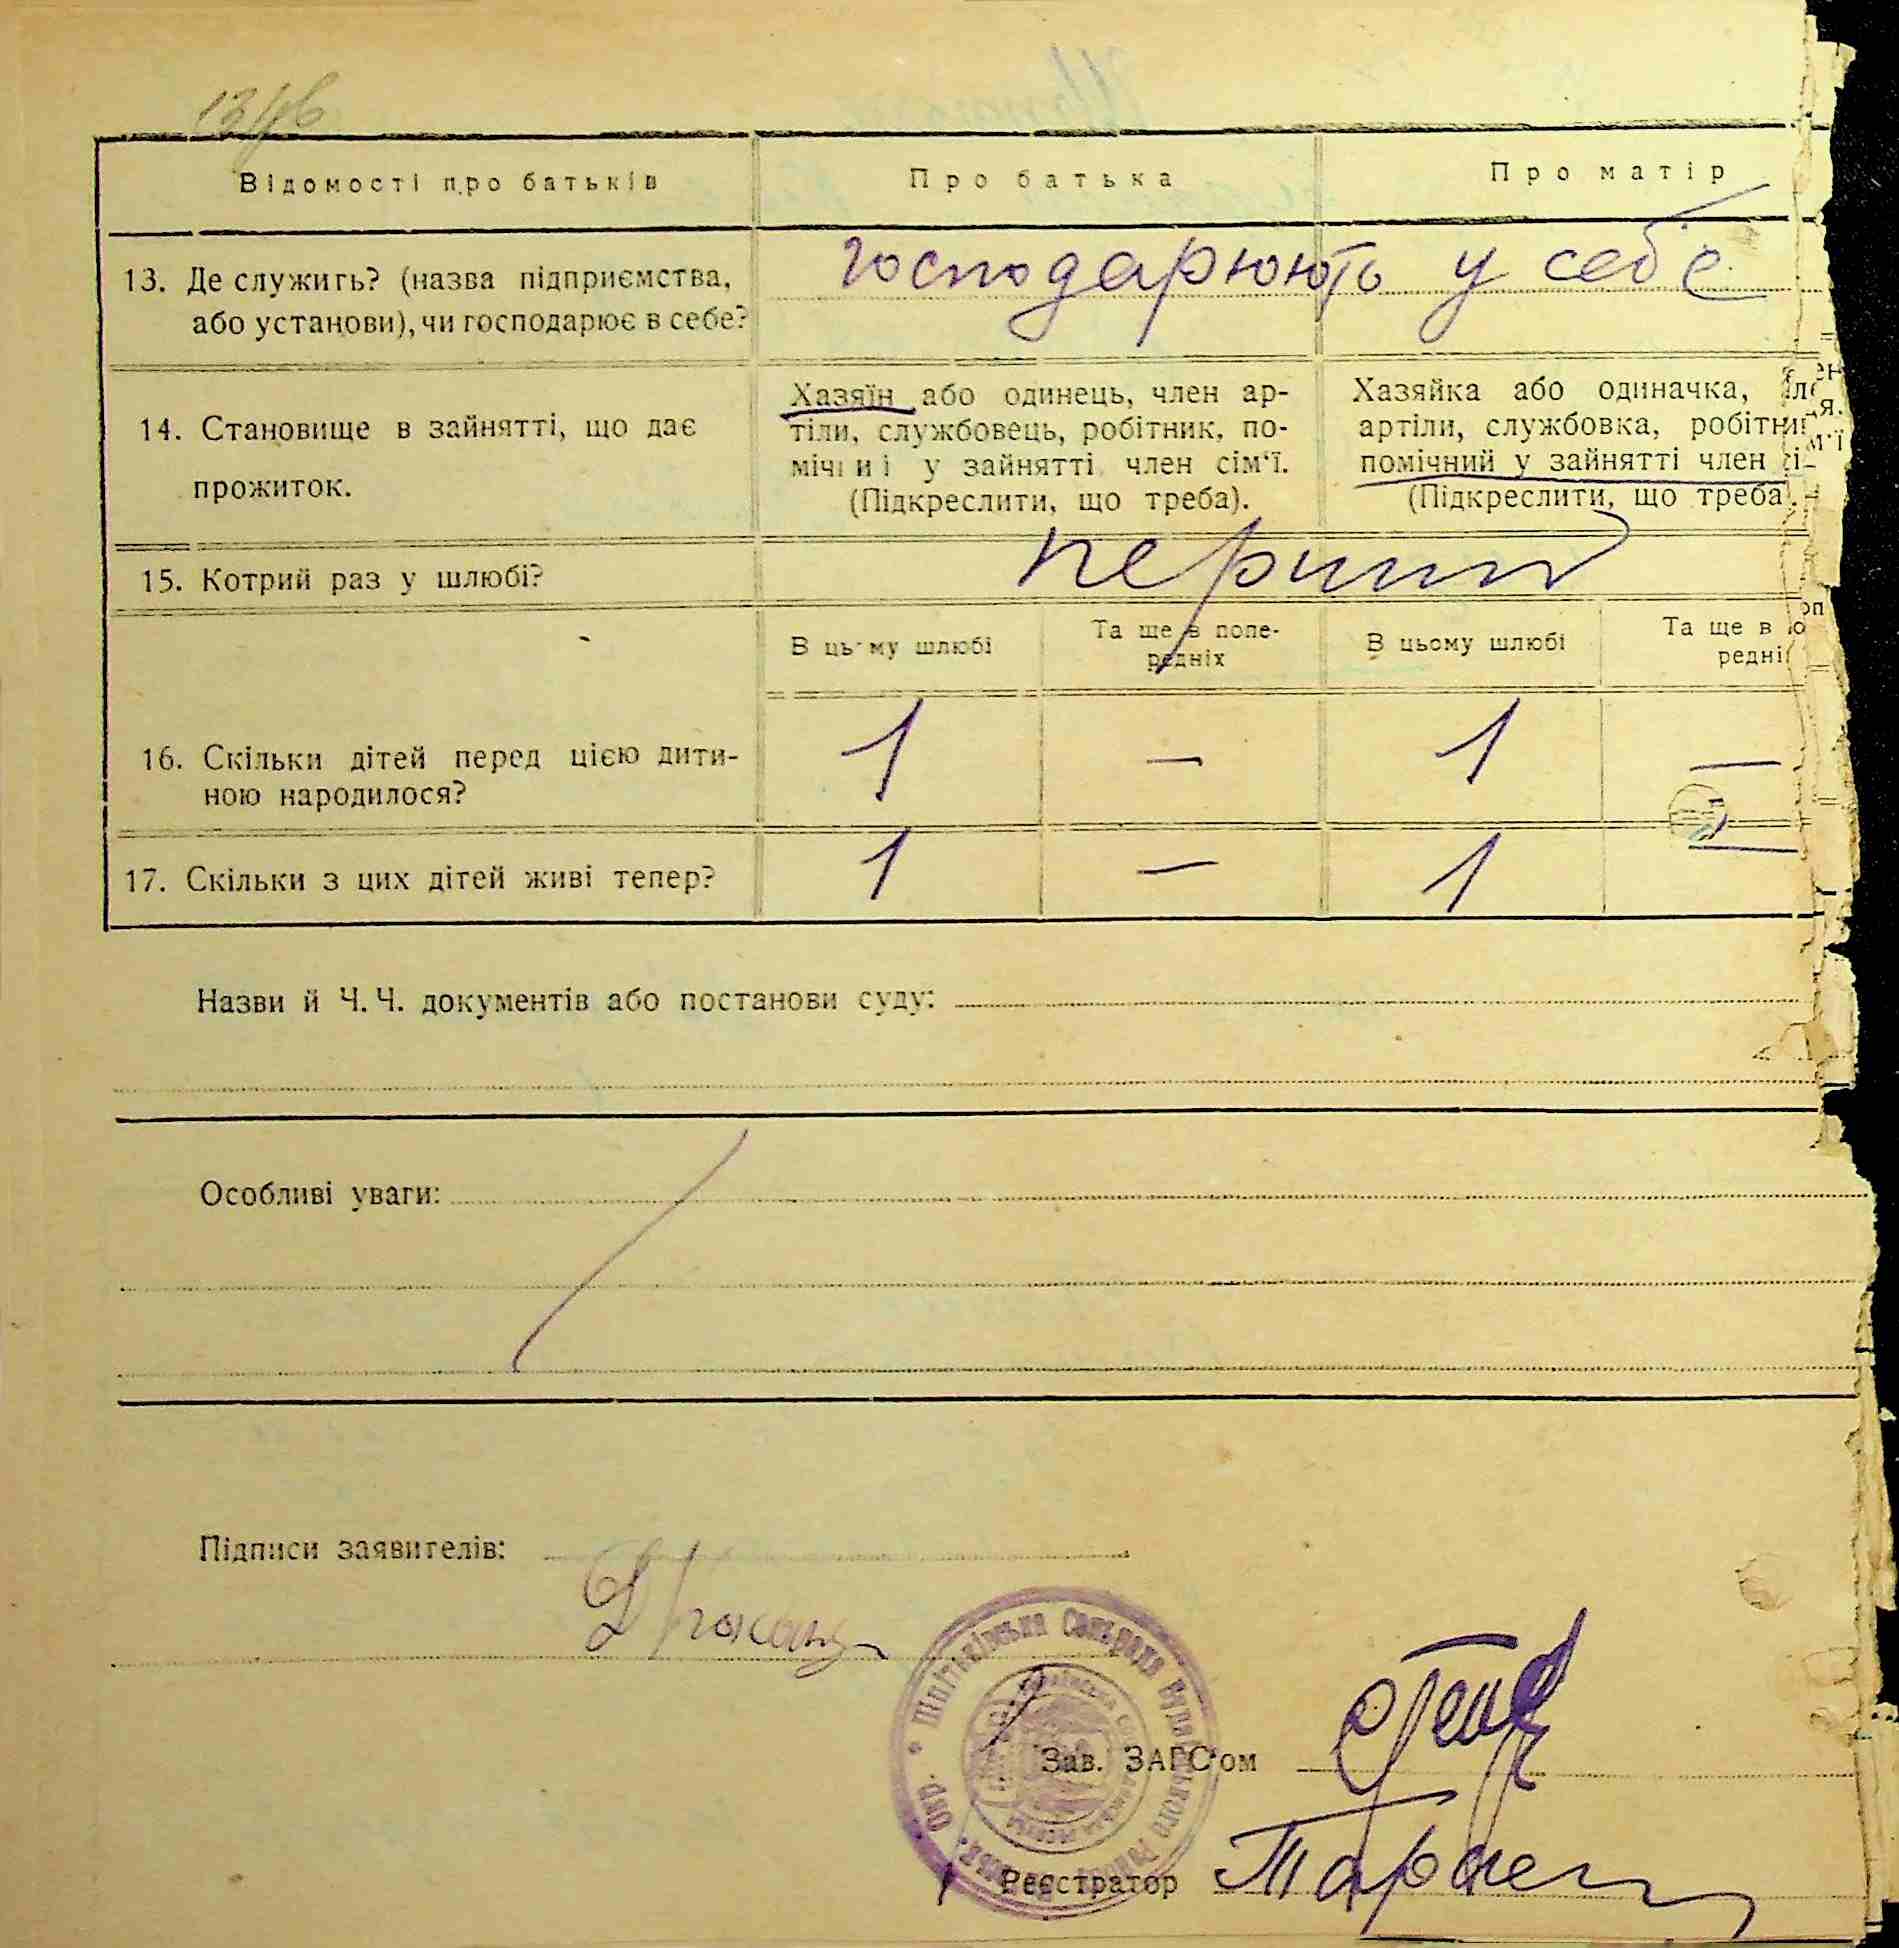 Відомості про батьків
Про батька
Про матір
13. Де служить? (назва підприємства, або установи), чи господарює в себе?
господарюють у себе
14. Становище в зайнятті, що дає прожиток.
Хазяїн або одинець, член ар-
тіли, службовець, робітник, по-
мічний у зайнятті член сім'ї.
(Підкреслити, що треба).
Хазяйка або одиначка,
артіли, службовка,
помічний у зайнятті член
(Підкреслити, що треба).
15. Котрий раз у шлюбі?
перший
В цьому шлюбі
Та ще в попе-
редніх
В цьому шлюбі
Та ще в
16. Скільки дітей перед цією дити-
ною народилося?
1 — 1 —
17. Скільки з цих дітей живі тепер?
1 — 1 —
Назви й Ч. Ч. документів або постанови суду:
Особливі уваги:
Підписи заявителів:
Зав. ЗАГС'ом
Реєстратор